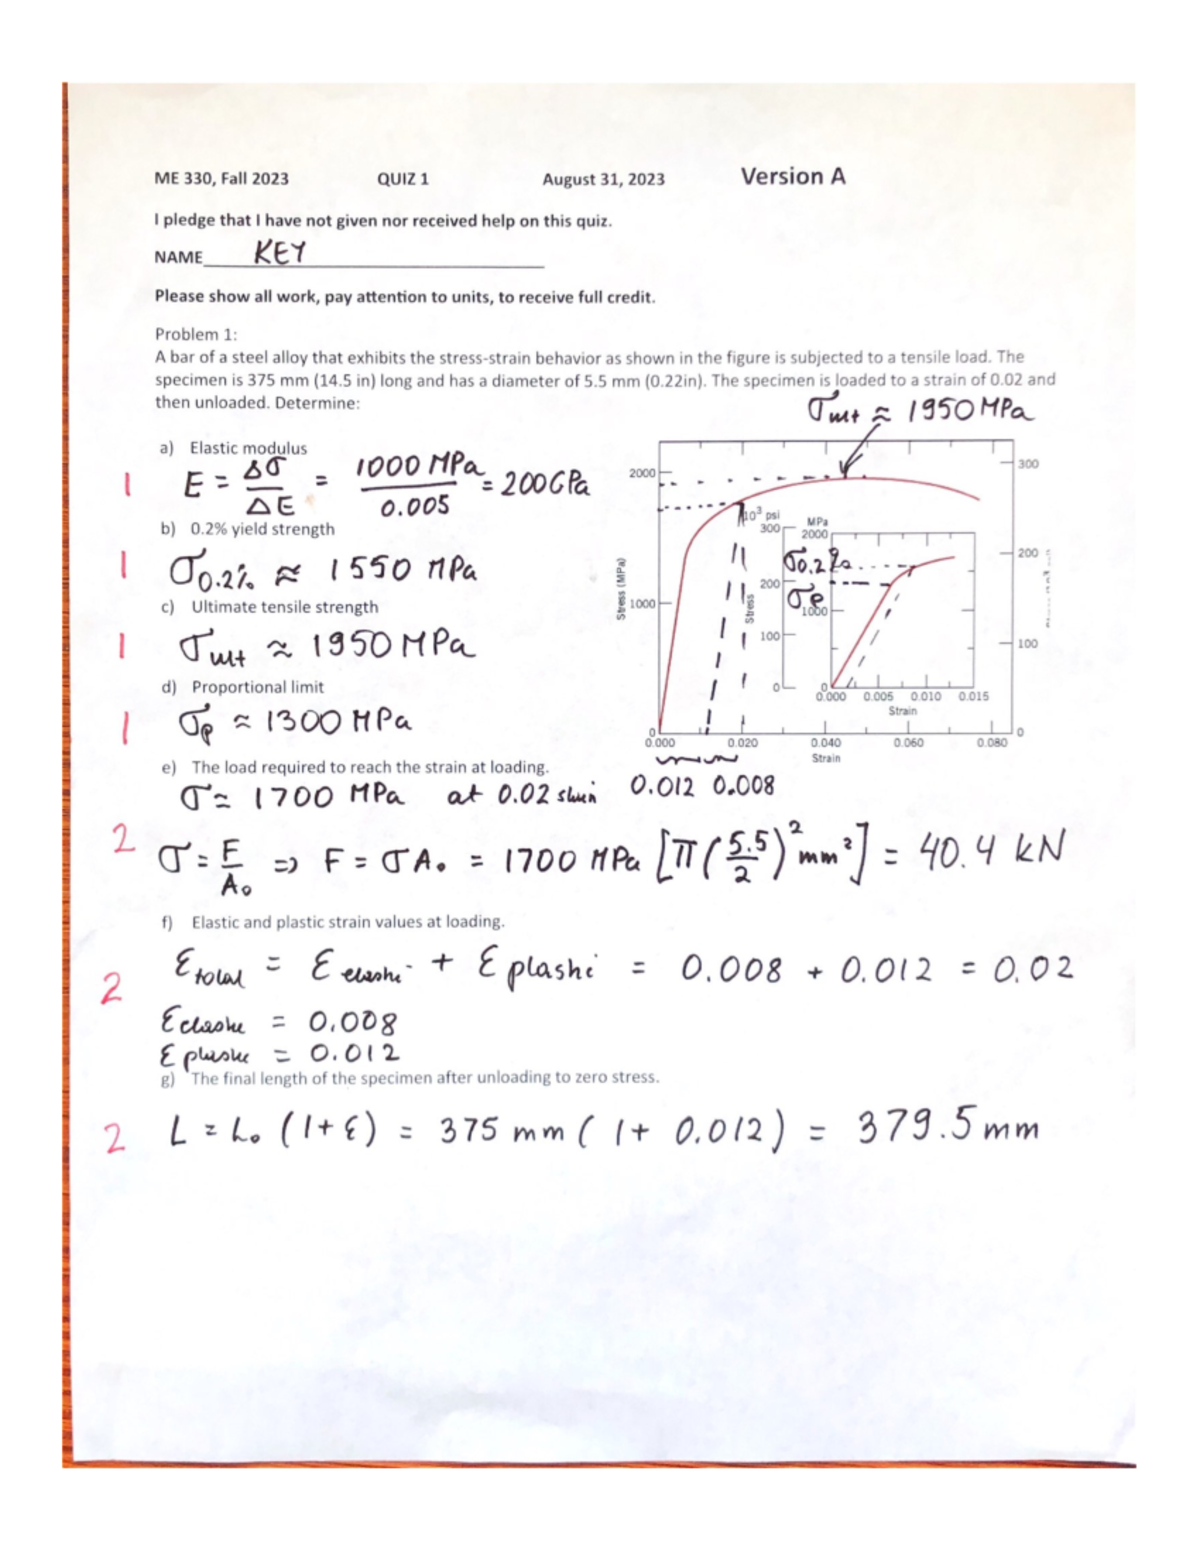 ME 330, Fall 2023 QUIZ 1 August 31, 2023 Version A
I pledge that I have not given nor received help on this quiz.
NAME KEY
Please show all work, pay attention to units, to receive full credit.
Problem 1:
A bar of a steel alloy that exhibits the stress-strain behavior as shown in the figure is subjected to a tensile load. The
specimen is 375 mm (14.5 in) long and has a diameter of 5.5 mm (0.22in). The specimen is loaded to a strain of 0.02 and
then unloaded. Determine:
σult ≈ 1950 MPa
a) Elastic modulus
1 E = Δσ/ΔE = 1000 MPa/0.005 = 200 GPa
b) 0.2% yield strength
1 σ0.2% ≈ 1550 MPa
c) Ultimate tensile strength
1 σult ≈ 1950 MPa
d) Proportional limit
1 σp ≈ 1300 MPa
2000
1000
0
Stress (MPa)
0.000 0.020 0.040 0.060 0.080
Strain
300
200
100
0
10³ psi
300
200
100
0
Stress
MPa
2000
1000
0
σ0.2%
σp
0.000 0.005 0.010 0.015
Strain
0.012 0.008
e) The load required to reach the strain at loading.
σ = 1700 MPa at 0.02 strain
2 σ = F/A₀ => F = σA₀ = 1700 MPa [π(5.5/2)² mm²] = 40.4 kN
f) Elastic and plastic strain values at loading.
2 εtotal = εelastic + εplastic = 0.008 + 0.012 = 0.02
εelastic = 0.008
εplastic = 0.012
g) The final length of the specimen after unloading to zero stress.
2 L = L₀ (1+ε) = 375 mm (1+ 0.012) = 379.5 mm